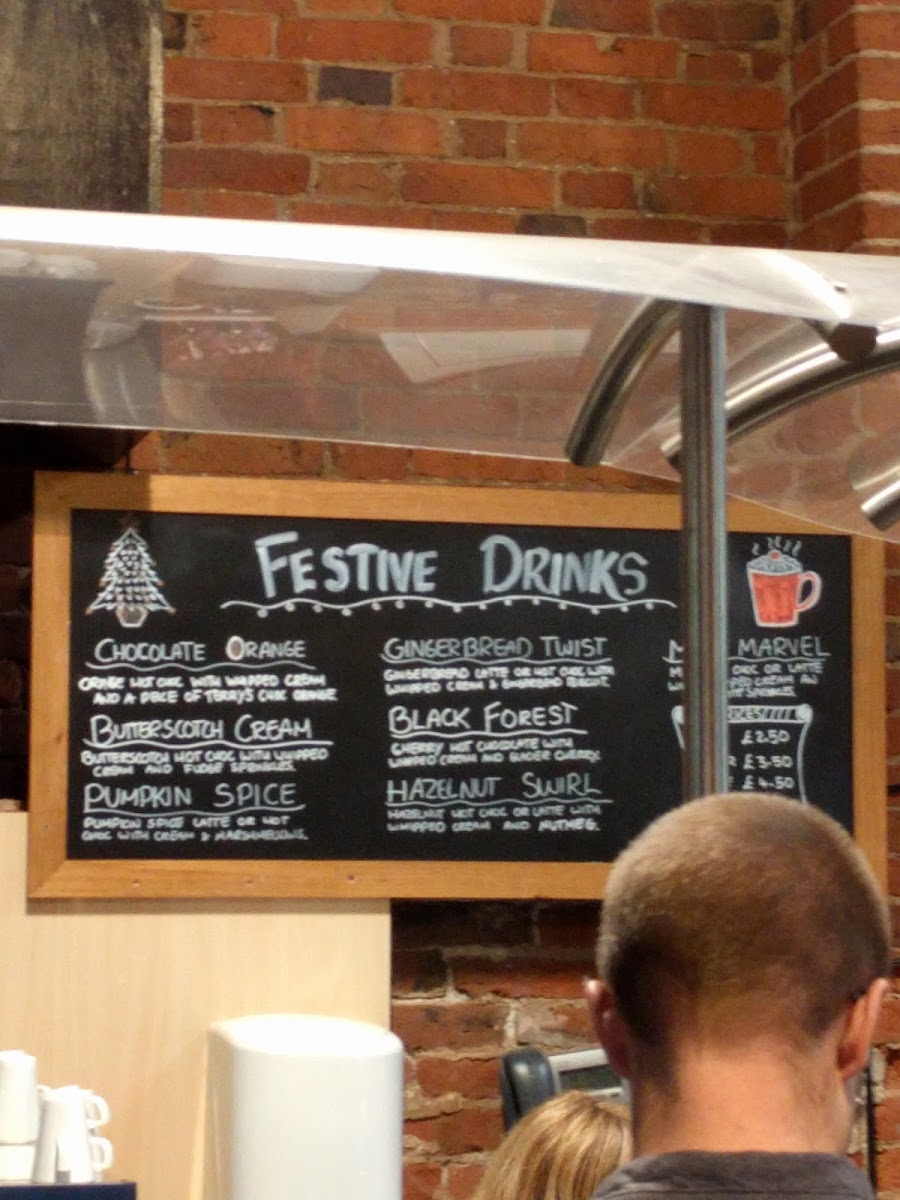 FESTIVE DRINKS
CHOCOLATE ORANGE
ORANGE HOT CHOC WITH WHIPPED CREAM
AND A PIECE OF TERRY'S CHOC ORANGE
BUTTERSCOTCH CREAM
BUTTERSCOTCH HOT CHOC WITH WHIPPED
CREAM AND FUDGE SPRINKLES
PUMPKIN SPICE
PUMPKIN SPICE LATTE OR HOT
CHOC WITH CREAM & MARSHMELLOWS.
GINGERBREAD TWIST
GINGERBREAD LATTE OR HOT CHOC WITH
WHIPPED CREAM & GINGERBREAD BISCUIT.
BLACK FOREST
CHERRY HOT CHOCOLATE WITH
WHIPPED CREAM AND GLACIER CHERRY.
HAZELNUT SWIRL
HAZELNUT HOT CHOC OR LATTE WITH
WHIPPED CREAM AND NUTMEG.
MARVEL
CHOC OR LATTE
CREAM AN
£2.50
£3.50
£4.50